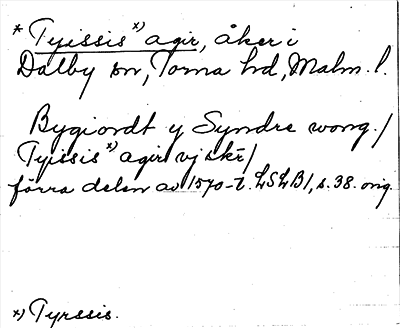 * Tyissis *) agir, åker i
Dalby sn, Torna hd, Malm. l.
Bygiordt y Syndre wong./
Tyissis *) agir vj skr/
förra delen av 1570-t. LSLB1, s. 38. orig.
*) Tyrssis.